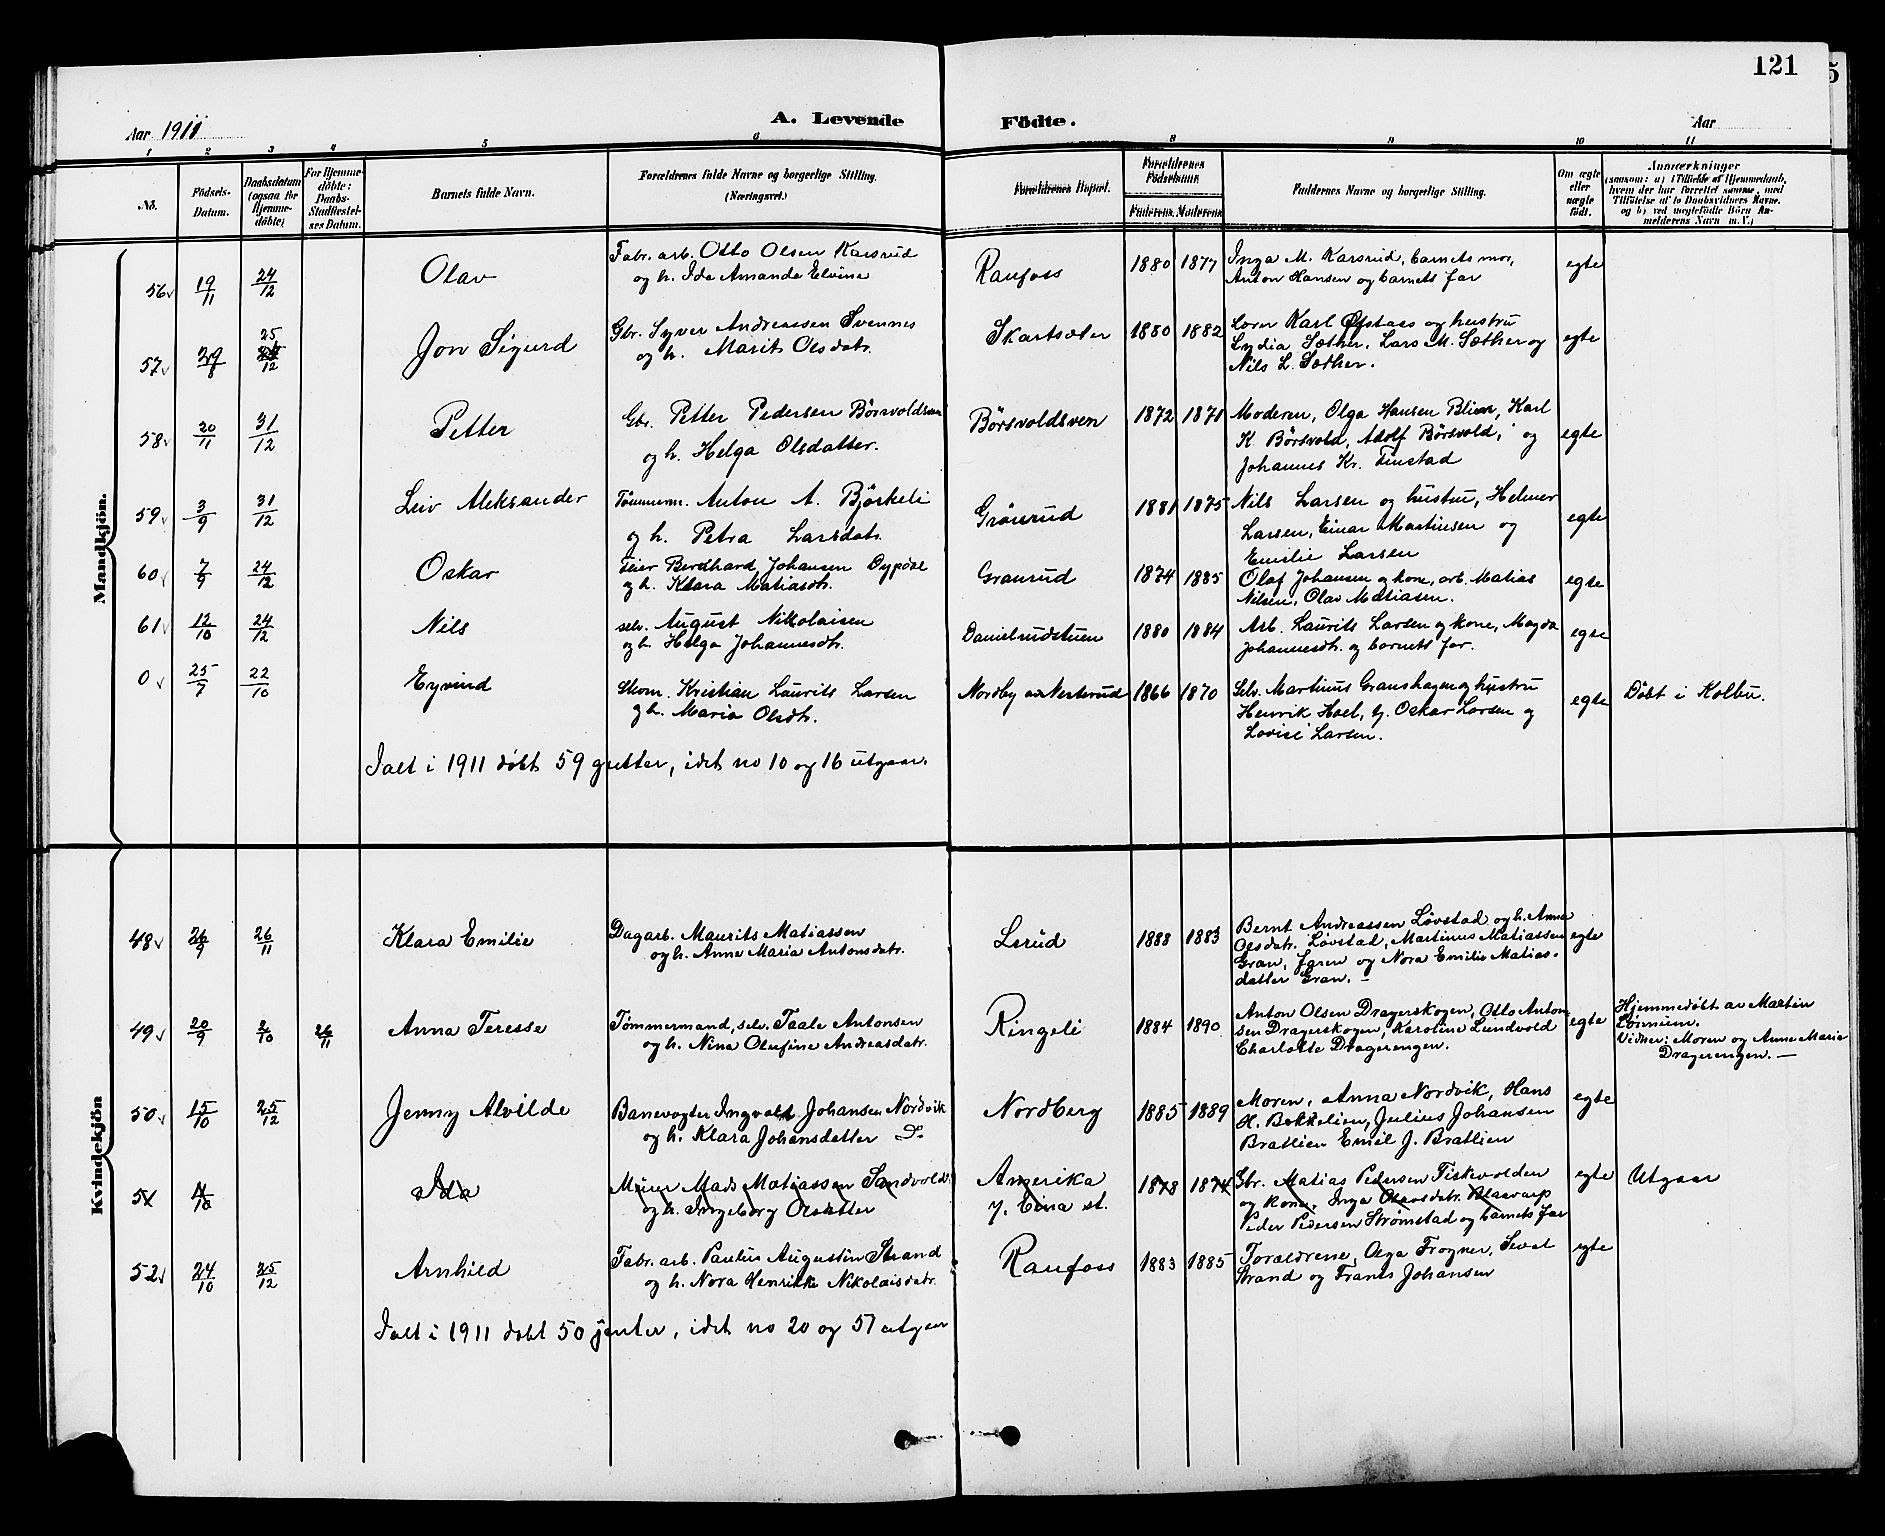 121
5
Aar 1911
A. Levende Födte.
Aar
1 2 3 4 5 6 8 9 10 11
No.
Födsels-Datum.
Daabsdatum (ogsaa for Hjemme-döbte)
For Hjemme-döbte: Daabs-Stadfæstel-ses Datum.
Barnets fulde Navn.
Forældrenes fulde Navne og borgerlige Stilling. (Næringsvei.)
Forældrenes Bopæl.
Forældrenes Födselsaar.
Faderens. Moderens.
Faddernes Navne og borgerlige Stilling.
Om ægte eller uægte født.
Anmærkninger
(saasom: a) i Tilfælde af Hjemmedaab, hvem der har forrettet samme, med Tilføielse af to Daabsvidners Navne. og b) ved uægtefödte Börn An-melderens Navn m. V.)
Mandkjön.
56 19/11 24/12 Olav
Fabr. arb. Otto Olsen Karsrud
og h. Ida Amanda Elvina
Raufoss 1880 1877
Inga M. Karsrud, barnets mor,
Anton Hansen og barnets far
egte
57 29/8 25/12 Jon Sigurd
Gbr. Syver Andreassen Svennes
og h. Marit Olsdatr.
Skartsæter 1880 1882
Lærer Karl Øfstaas og hustru
Lydia Sæther, Lars M. Sæther og
Nils L. Sæther.
egte
58 20/11 31/12 Petter
Gbr. Petter Pedersen Börsvoldsven
og h. Helga Olsdatter.
Börsvoldsven 1872 1871
Moderen, Olga Hansen Blien, Karl
K Börsvold, Adolf Börsvold, og
Johannes Kr. Finstad
egte
59 3/9 31/12 Leiv Aleksander
Tömmerm. Anton A. Björkeli
og h. Petra Larsdatr.
Grönrud 1881 1875
Nils Larsen og hustru, Helmer
Larsen, Einar Martinsen og
Emilie Larsen
egte
60 7/9 24/12 Oskar
Feier Berdhard Johansen
og h. Klara Matiasdtr.
Granrud 1874 1885
Olaf Johansen og kone, arb. Matias
Nilsen, Olav Matiasen.
egte
61 12/10 24/12 Nils
selv. August Nikolaisen
og h. Helga Johannesdtr.
Danielrudstuen 1880 1884
Arb. Laurits Larsen og kone, Magda
Johannesdtr. og barnets far.
egte
0 25/7 22/10 Eyvind
Skom. Kristian Laurits Larsen
og h. Maria Olsdtr.
Nordby av Nesterud 1866 1870
Selv. Martinus Granshagen og hustru
Henrik Hoel, Oskar Larsen og
Lovise Larsen.
egte
Döbt i Kolbu.
Ialt i 1911 döbt 59 gutter, idet no 10 og 16 utgaar.
Kvindekjön
48 26/9 26/11 Klara Emilie
Dagarb. Maurits Matiassen
og h. Anne Maria Antonsdatr.
Lerud 1888 1883
Bernt Andreassen Løvstad og h. Anna
Olsdatr. Løvstad, Martinus Matiassen
Gran, og Nora Emilie Matias-
datter Gran. -
egte
49 20/9 2/10 26/11 Anna Teresse
Tömmermand, selv. Taale Antonsen
og h. Nina Olufine Andreasdatr.
Ringeli 1884 1890
Anton Olsen Dragerskogen, Otto Anton-
sen Dragerskogen, Karoline Lundvold
Charlotte Dragerengen.
egte
Hjemmedøbt av Martin
Vidner: Moren og Anne Marie
Dragerengen. —
50 15/10 25/12 Jenny Alvilde
Banevogter Ingvald Johansen Nordvik
og h. Klara Johansdatter
Nordberg 1885 1889
Moren, Anna Nordvik, Hans
H. Bakkelien, Julius Johansen
Bratlien Emil J. Bratlien
egte
51 Ida
Murer Mads Matiassen Sandvold
og h. Ingeborg Olsdatter
Amerika
y. Eina st.
1878 1874
Gbr. Matias Pedersen Fiskevolden
og kone, Inga Olavsdatr. Blaavarp
Peder Pedersen Strømstad og barnets far
egte
Utgaar
52 24/10 25/12 Arnhild
Fabr. arb. Paulus Augustin Strand
og h. Nora Henrikke Nikolaisdatr.
Raufoss 1883 1885
Forældrene, Olga Frogner, Sevat
Strand og Frants Johansen
egte
Ialt i 1911 døbt 50 jenter, idet no 20 og 51 utgaar